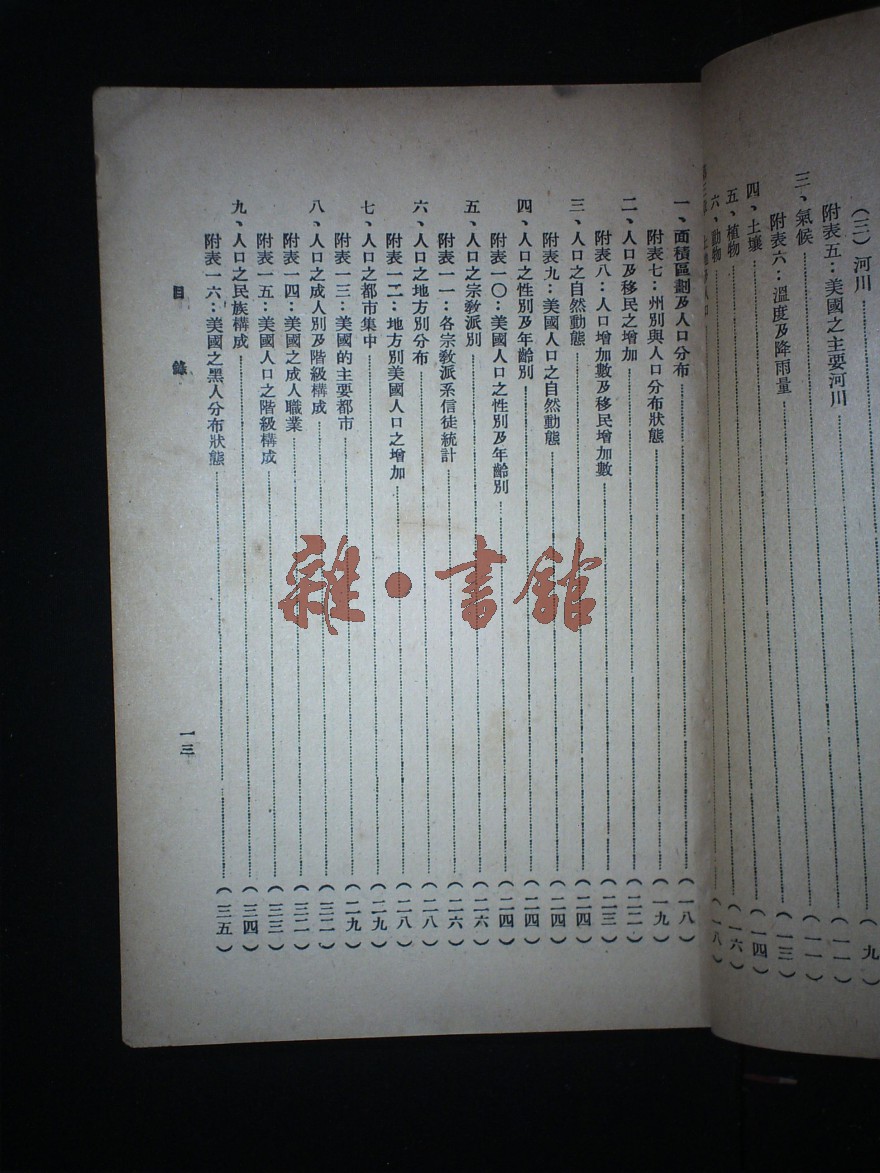 （三）河川……（九）
附表五：美國之主要河川……（一一）
三、氣候……（一一）
附表六：溫度及降雨量……（一三）
四、土壤……（一四）
五、植物……（一六）
六、動物……（一八）
一、面積區劃及人口分布……（一八）
附表七：州別與人口分布狀態……（一九）
二、人口及移民之增加……（二二）
附表八：人口增加數及移民增加數……（二三）
三、人口之自然動態……（二四）
附表九：美國人口之自然動態……（二四）
四、人口之性別及年齡別……（二四）
附表一〇：美國人口之性別及年齡別……（二四）
五、人口之宗教派別……（二六）
附表一一：各宗教派系信徒統計……（二六）
六、人口之地方別分布……（二八）
附表一二：地方別美國人口之增加……（二八）
七、人口之都市集中……（二九）
附表一三：美國的主要都市……（二九）
八、人口之成人別及階級構成……（三二）
附表一四：美國之成人職業……（三二）
附表一五：美國人口之階級構成……（三三）
九、人口之民族構成……（三四）
附表一六：美國之黑人分布狀態……（三五）
目錄
一三
雜·書館